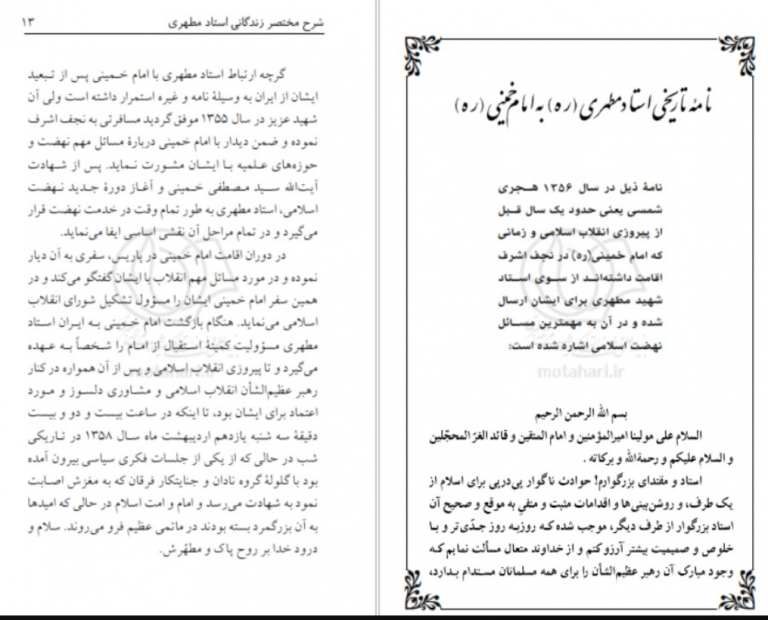 شرح مختصر زندگانی استاد مطهری ۱۳
گرچه ارتباط استاد مطهری با امام خـمینی پس از تـبعید
ایشان از ایران به وسیلهٔ نامه و غیره استمرار داشته است ولی آن
شهید عزیز در سال ۱۳۵۵ موفق گردید مسافرتی به نجف اشرف
نموده و ضمن دیدار با امام خمینی دربارهٔ مسائل مهم نهضت و
حوزه‌های علمیه با ایشان مشورت نماید. پس از شهادت
آیت‌الله سید مصطفی خمینی و آغاز دورهٔ جدید نهضت
اسلامی، استاد مطهری به طور تمام وقت در خدمت نهضت قرار
می‌گیرد و در تمام مراحل آن نقشی اساسی ایفا می‌نماید.
در دوران اقامت امام خمینی در پاریس، سفری به آن دیار
نموده و در مورد مسائل مهم انقلاب با ایشان گفتگو می‌کند و در
همین سفر امام خمینی ایشان را مسؤول تشکیل شورای انقلاب
اسلامی می‌نماید. هنگام بازگشت امام خـمینی بـه ایـران استاد
مطهری مسؤولیت کمیتهٔ استقبال از امام را شخصاً بـه عـهده
می‌گیرد و تا پیروزی انقلاب اسلامی و پس از آن همواره در کنار
رهبر عظیم‌الشأن انقلاب اسلامی و مشاوری دلسوز و مورد
اعتماد برای ایشان بود، تا اینکه در ساعت بیست و دو و بیست
دقیقهٔ سه شنبه یازدهم اردیبهشت ماه سال ۱۳۵۸ در تاریکی
شب در حالی که از یکی از جلسات فکری سیاسی بیرون آمده
بود با گلولهٔ گروه نادان و جنایتکار فرقان که به مغزش اصابت
نمود به شهادت می‌رسد و امام و امت اسلام در حالی که امیدها
به آن بزرگمرد بسته بودند در ماتمی عظیم فرو می‌روند. سلام و
درود خدا بر روح پاک و مطهّرش.
نامهٔ تاریخی استاد مطهری (ره) به امام خمینی (ره)
نامهٔ ذیل در سال ۱۳۵۶ هـجری
شمسی یعنی حدود یک سال قـبل
از پیروزی انقلاب اسلامی و زمانی
که امام خمینی(ره) در نجف اشرف
اقامت داشته‌اند از سوی استاد
شهید مطهری برای ایشان ارسال
شده و در آن به مهمترین مسـائل
نهضت اسلامی اشاره شده است:
motahari.ir
motahari.ir
بسم الله الرحمن الرحیم
السلام علی مولینا امیرالمؤمنین و امام المتقین و قائد الغرّ المحجّلین
و السلام علیکم و رحمةالله و برکاته .
استاد و مقتدای بزرگوارم! حوادث ناگوار پی‌درپی برای اسلام از
یک طرف، و روشن‌بینی‌ها و اقدامات مثبت و منفی به موقع و صحیح آن
استاد بزرگوار از طرف دیگر، موجب شده کـه روزبـه روز جـدّی‌تر و بـا
خلوص و صمیمیت بیشتر آرزو کنم و از خداوند متعال مسألت نمایم کـه
وجود مبارک آن رهبر عظیم‌الشأن را برای همه مسلمانان مستدام بـدارد،